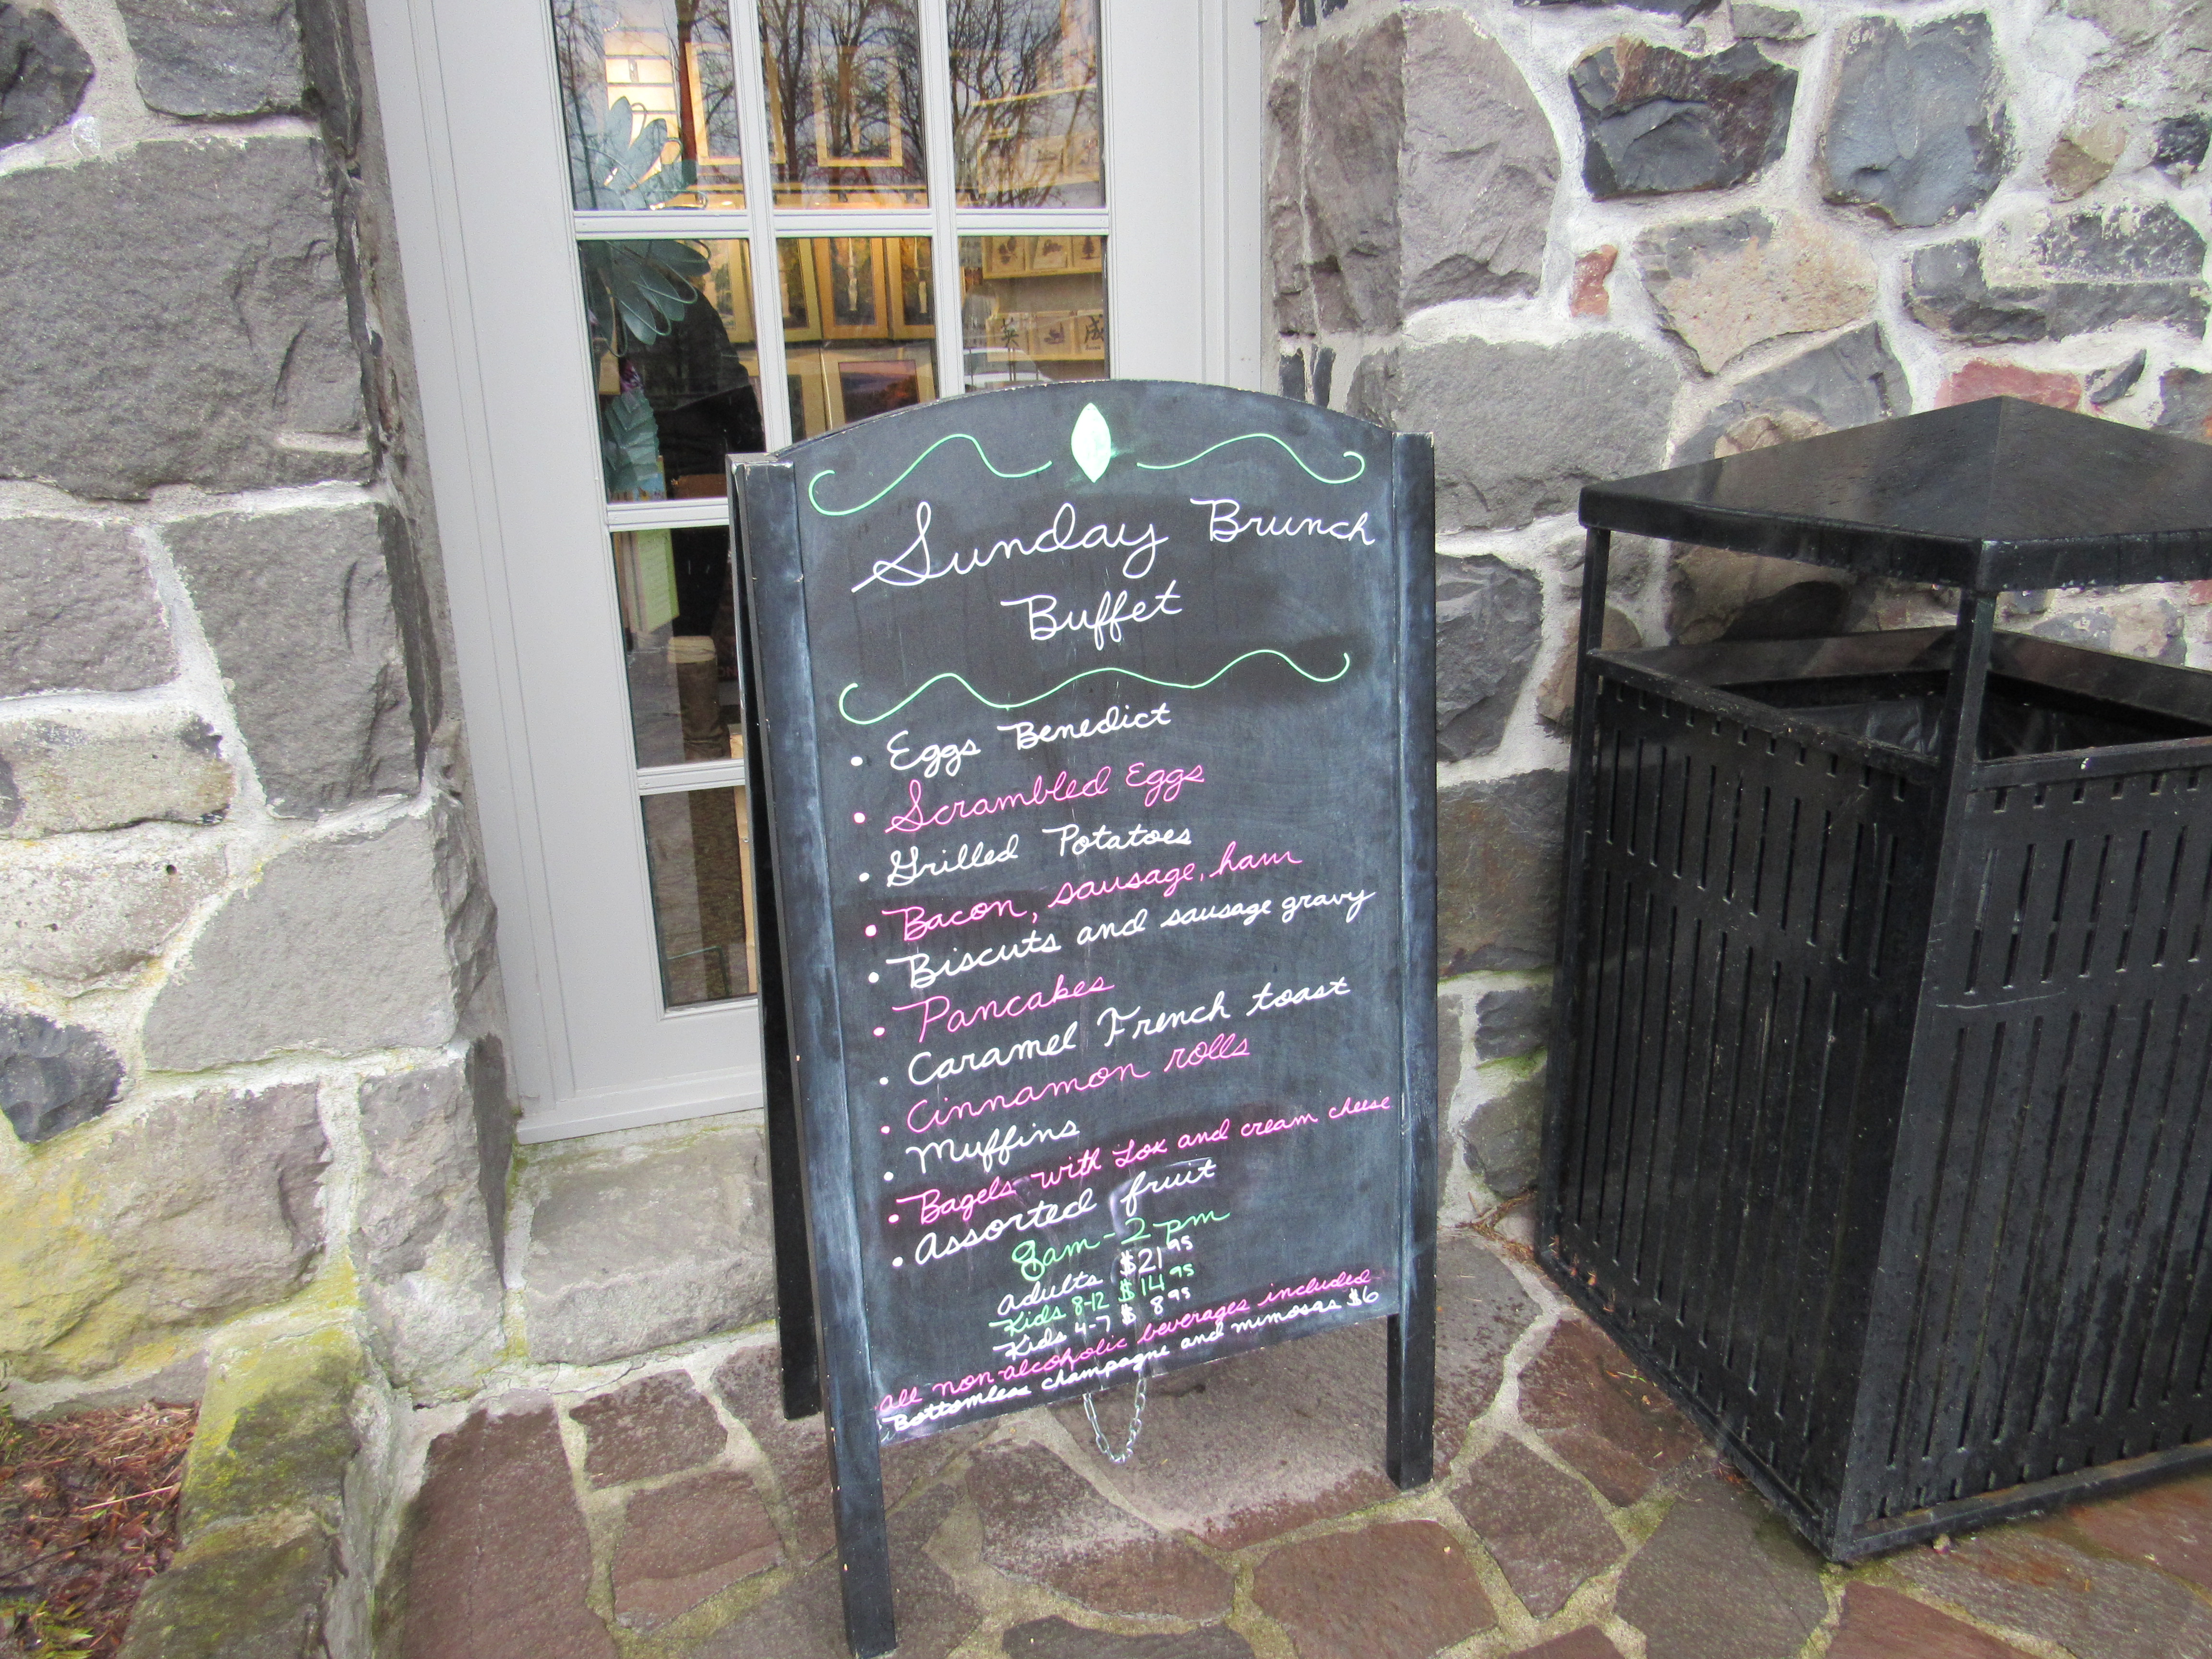 Sunday Brunch
Buffet
• Eggs Benedict
• Scrambled Eggs
• Grilled Potatoes
• Bacon, sausage, ham
• Biscuts and sausage gravy
• Pancakes
• Caramel French toast
• Cinnamon rolls
• Muffins
• Bagels with Lox and cream cheese
• Assorted fruit
8am - 2pm
adults $21.95
Kids 8-12 $14.95
Kids 4-7 $8.95
all non-alcoholic beverages included
Bottomless champagne and mimosas $6
英
成